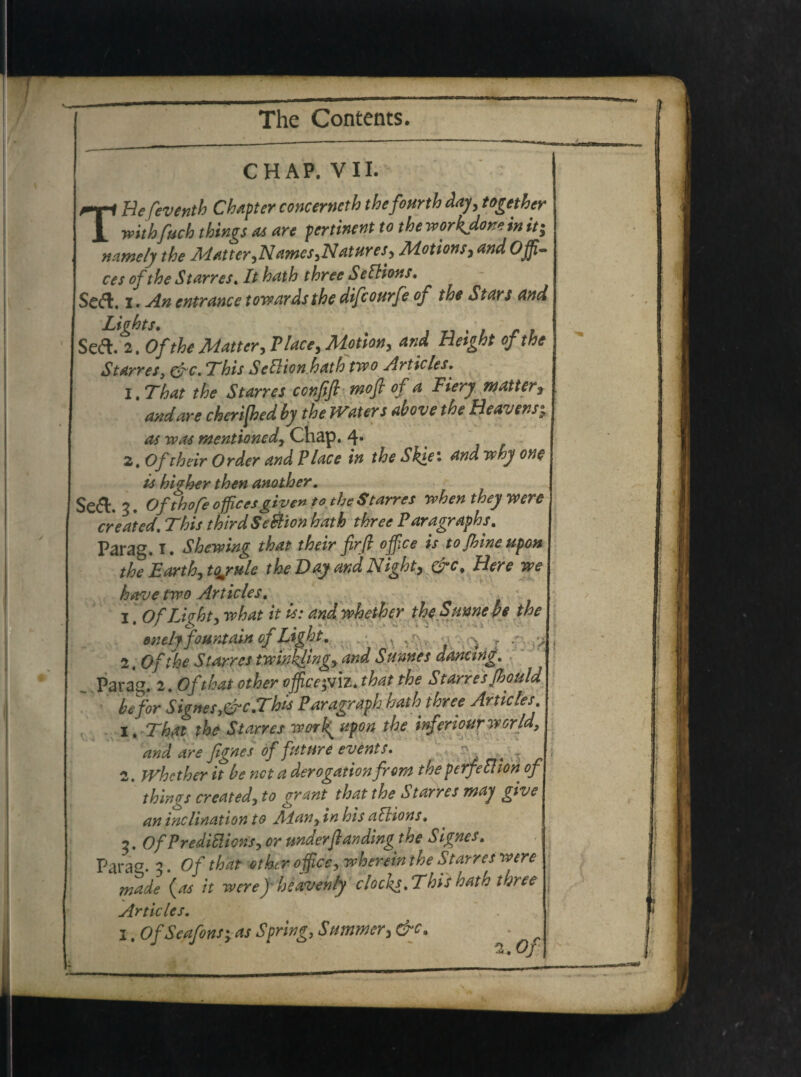 The Contents.
CHAP. VII.
THe ſeventh Chapter concerneth the fourth day, together
with ſuch things as are pertinent to the work done in it;
namely the Matter, Names, Natures, Motions, and Offi-
ces of the Starres. It hath three Sections.
Sect. 1. An entrance towards the diſcourſe of the Stars and
Lights.
Sect. 2. Of the Matter, Place, Motion, and Height of the
Starres, &c. This Section hath two Articles.
1. That the Starres conſiſt moſt of a Fiery matter,
and are cheriſhed by the Waters above the Heavens;
as was mentioned, Chap. 4.
2. Of their Order and Place in the Skie: and why one
is higher then another.
Sect. 3. Of thoſe offices given to the Starres when they were
created. This third Section hath three Paragraphs.
Parag. 1. Shewing that their firſt office is to ſhine upon
the Earth, to rule the Day and Night, &c. Here we
have two Articles.
1. Of Light, what it is: and whether the Sunne be the
onely fountain of Light.
2. Of the Starres twinkling, and Sunnes dancing.
Parag. 2. Of that other office; viz. that the Starres ſhould
be for Signes, &c. This Paragraph hath three Articles.
1. That the Starres work upon the inferiour world,
and are ſignes of future events.
2. Whether it be not a derogation from the perfection of
things created, to grant that the Starres may give
an inclination to Man, in his actions.
3. Of Predictions, or underſtanding the Signes.
Parag. 3. Of that other office, wherein the Starres were
made (as it were) heavenly clocks. This hath three
Articles.
1. Of Seaſons; as Spring, Summer, &c.
2. Of